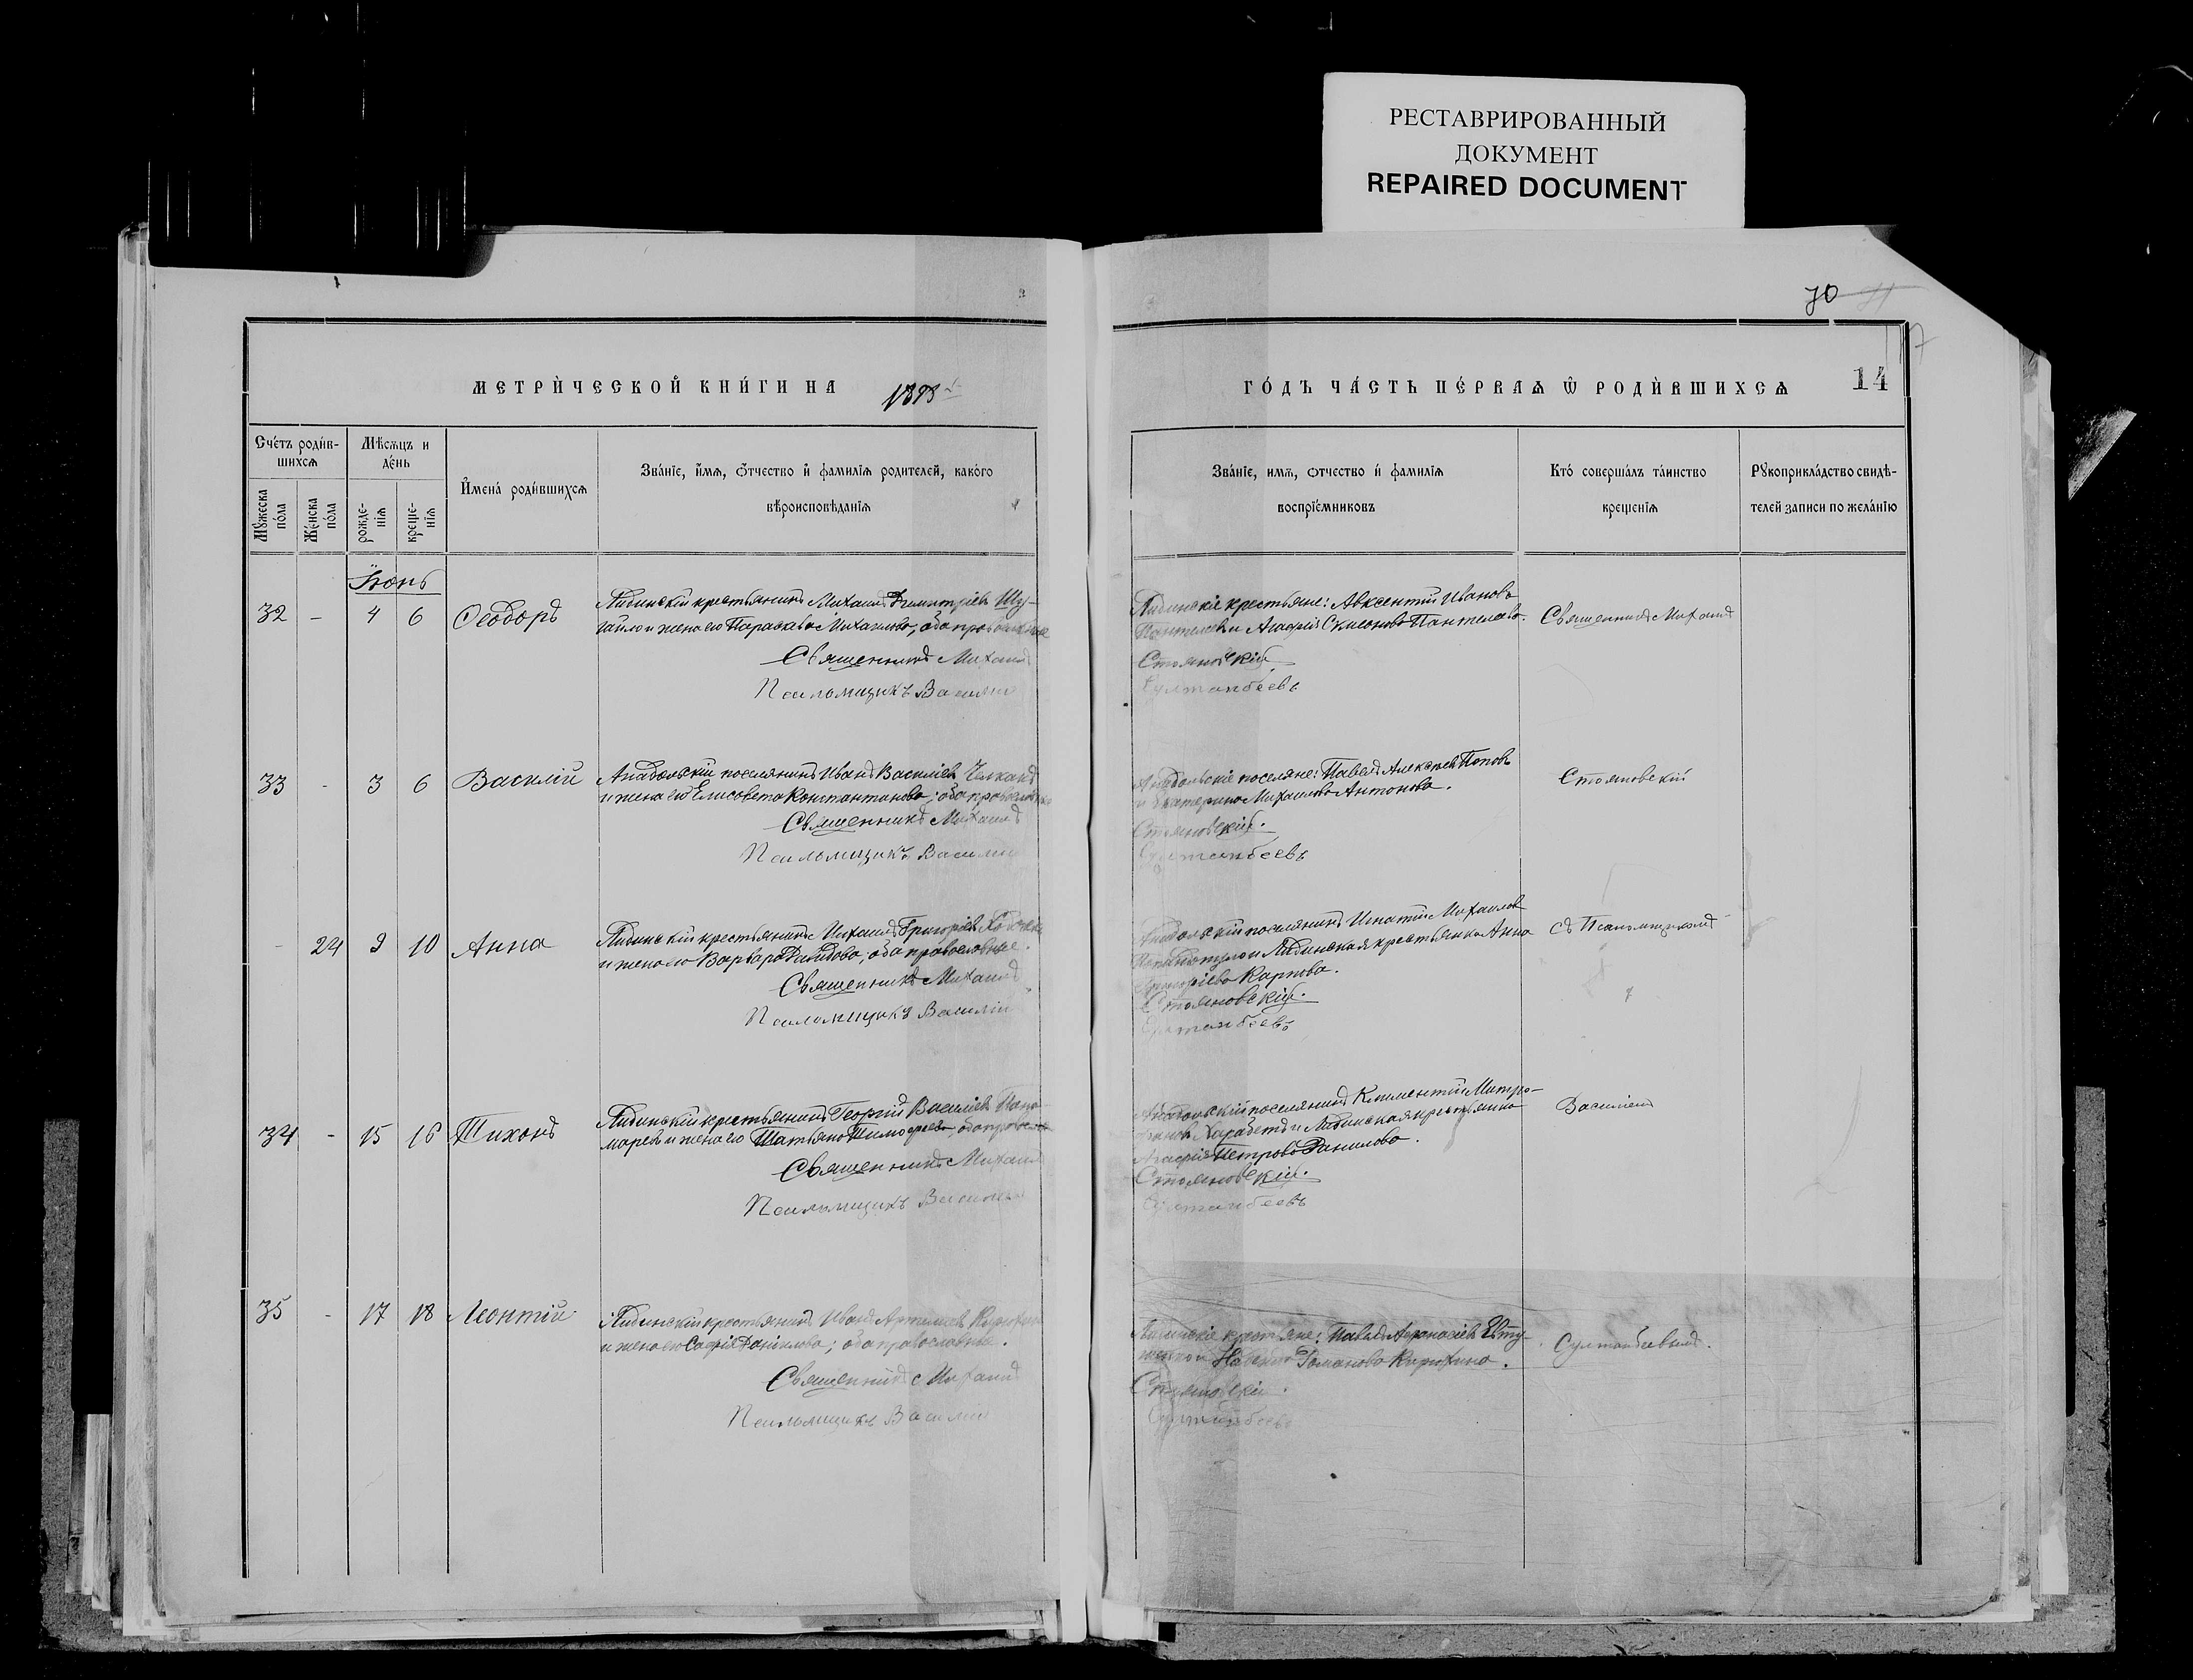 РЕСТАВРИРОВАННЫЙ
ДОКУМЕНТ
REPAIRED DOCUMENT
70
МЕТРИ́ЧЕСКОЙ КНИ́ГИ НА 1898
ГО́ДЪ ЧА́СТЬ ПЕ́РВАѦ Ѿ РОДИ́ВШИХСѦ
14
Сче́тъ роди́в-
шихсѧ
Мѣ́сѧцъ и
де́нь
И҆мена́ роди́вшихсѧ
Зва́нїе, и҆́мѧ, ѻ҆́тчество и҆ фами́лїѧ роди́телей, како́го
вѣроисповѣ́данїѧ
Мꙋ́жеска
по́ла
Же́нска
по́ла
рожде-
нїѧ
креще-
нїѧ
Зва́нїе, имѧ, ѻтчество и҆ фами́лїѧ
воспрїе́мниковъ
Кто́ соверша́лъ та́инство
креще́нїѧ
Рꙋкоприкла́дство свидѣ́-
телей записи по жела́нїю
Іюнь
32 - 4 6 Ѳеодоръ
крестьянинъ Михаилъ Димитріевъ Шу-
и жена его Параскева Михаилова, оба православные
Священникъ Михаилъ
Псаломщикъ Василій
крестьяне: Авксентій Ивановъ
Пантелеевъ и Агафія Симеонова Пантелеева.
Стояновскій
Султанбеевъ
Священникъ Михаилъ
33 - 3 6 Василій
Анадольскій поселянинъ Иванъ Василіевъ Челкакъ
и жена его Елисавета Константинова; оба православные
Священникъ Михаилъ
Псаломщикъ Василій
Анадольскіе поселяне: Павелъ Алексѣевъ Поповъ
и Екатерина Михаилова Антонова.
Стояновскій.
Султанбеевъ
Стояновскій
- 24 9 10 Анна
крестьянинъ Михаилъ Григоріевъ
и жена его Варвара Давидова; оба православные.
Священникъ Михаилъ
Псаломщикъ Василій
Анадольскій поселянинъ Игнатій Михаиловъ
и крестьянка Анна
Григоріева Карпова.
Стояновскій.
Султанбеевъ
съ Псаломщикомъ
34 - 15 16 Тихонъ
крестьянинъ Георгій Василіевъ Поно-
маревъ и жена его Татьяна Тимофеева, оба православные
Священникъ Михаилъ
Псаломщикъ Василій
Анадольскій поселянинъ Климентій Митро-
фановъ Харабетъ и крестьянка
Агафія Петрова Данилова.
Стояновскій.
Султанбеевъ
Василіемъ
35 - 17 18 Леонтій
крестьянинъ Иванъ Артемовъ
и жена его Софія Данілова; оба православные.
Священникъ Михаилъ
Псаломщикъ Василій
крестьяне: Павелъ Афанасіевъ
Романова
Стояновскій.
Султанбеевъ
Султанбеевымъ.